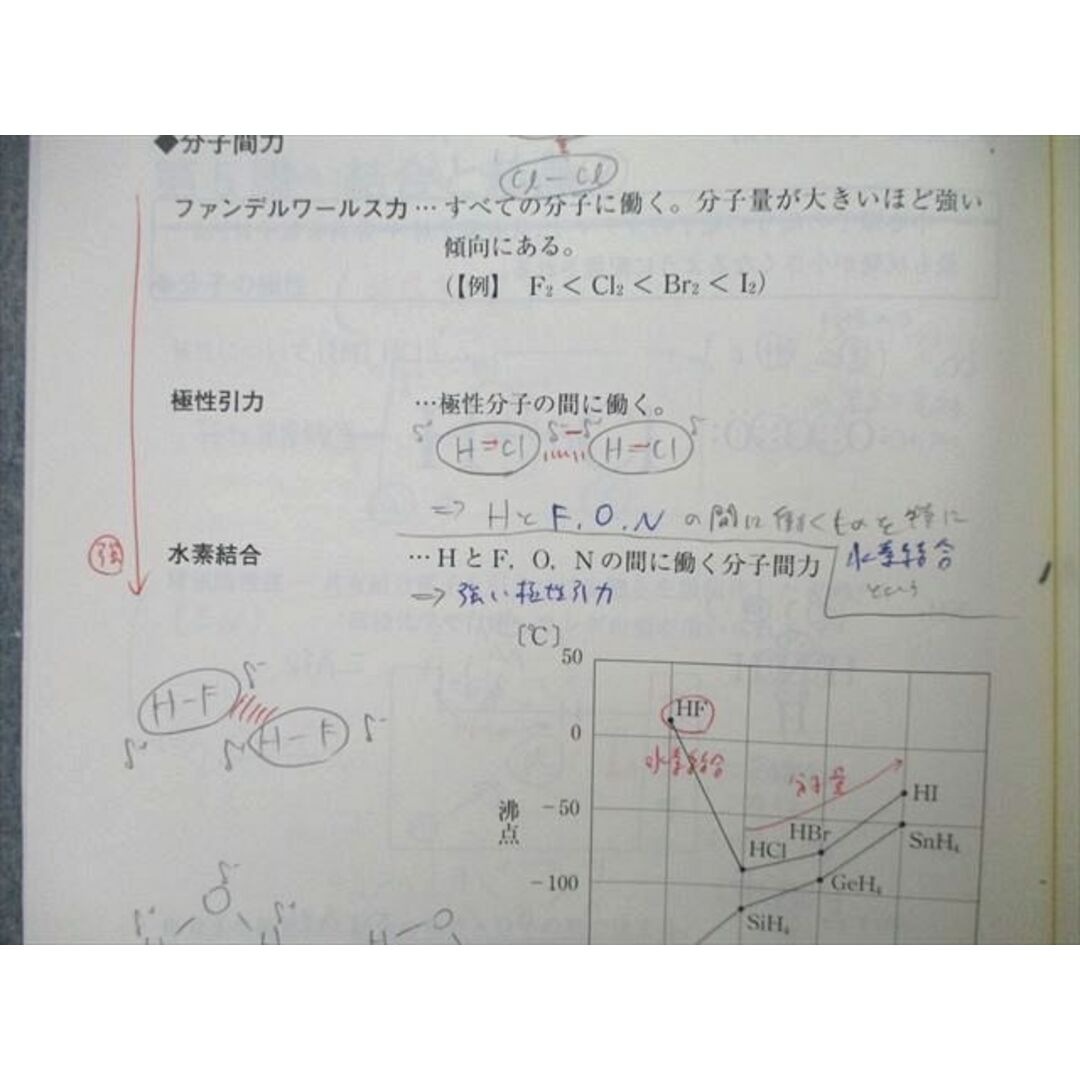 ◆分子間力
Cl-Cl
ファンデルワールス力…すべての分子に働く。分子量が大きいほど強い
傾向にある。
(【例】 F₂ < Cl₂ < Br₂ < I₂)
極性引力 …極性分子の間に働く。
δ⁺ H-Cl δ⁻ δ⁺ H-Cl δ
⇒ HとF, O, Nの間に働くものを特に
水素結合
という
強
水素結合 …HとF, O, Nの間に働く分子間力
⇒ 強い極性引力
[℃]
50
0
-50
-100
沸点
HF
水素結合
分子量
HI
HBr
HCl
SnH₄
GeH₄
SiH₄
δ⁺ H-F δ⁻
δ⁺ H-F δ⁻
δ⁻
O
δ⁺ H H δ⁺
H O